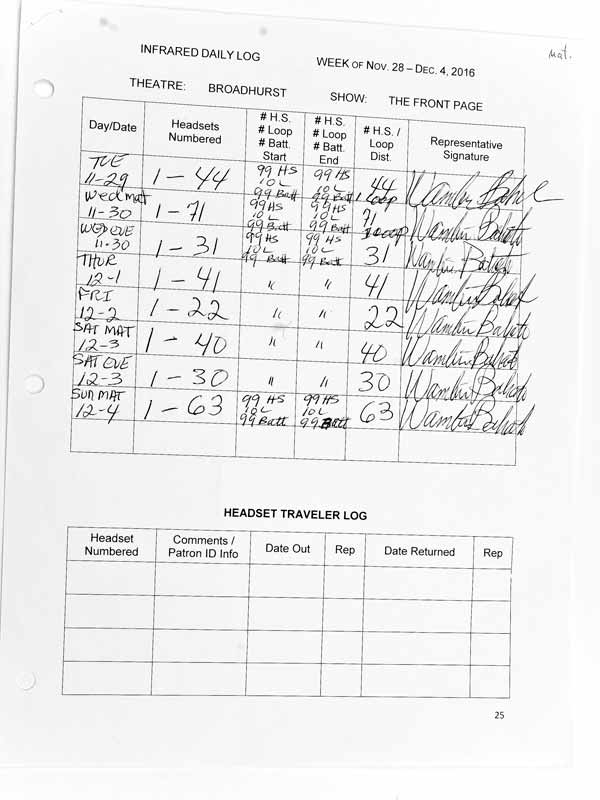 mat.
INFRARED DAILY LOG WEEK OF NOV. 28 – DEC. 4, 2016
THEATRE: BROADHURST SHOW: THE FRONT PAGE
Day/Date Headsets Numbered # H.S. # Loop # Batt. Start # H.S. # Loop # Batt. End # H.S. / Loop Dist. Representative Signature
TUE 11-29 1-44 99 HS 10 L 99 Batt 99 HS 10 L 99 Batt 44 1 Loop
Wed mat 11-30 1-71 99 HS 10 L 99 Batt 99 HS 10 L 99 Batt 71 1 Loop
WED EVE 11-30 1-31 99 HS 10 L 99 Batt 99 HS 10 L 99 Batt 31
THUR 12-1 1-41 " " 41
FRI 12-2 1-22 " " 22
SAT MAT 12-3 1-40 " " 40
SAT EVE 12-3 1-30 " " 30
SUN MAT 12-4 1-63 99 HS 10 L 99 Batt 99 HS 10 L 99 Batt 63
HEADSET TRAVELER LOG
Headset Numbered Comments / Patron ID Info Date Out Rep Date Returned Rep
25